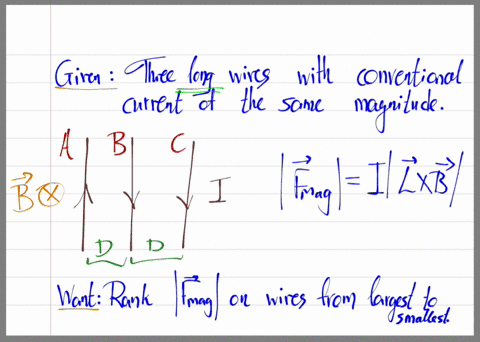 Given: Three long wires with conventional
current of the same magnitude.
A B C
B⃗ ⊗ I |F⃗mag| = I|L⃗ × B⃗|
D D
Want: Rank |F⃗mag| on wires from largest to
smallest.